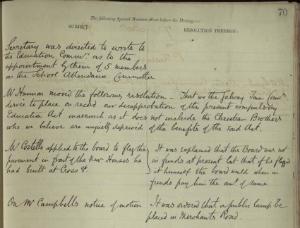 70
The following Special Business stood before the Meeting:—
SUBJECT.
RESOLUTION THEREON.
Secretary was directed to write to
the Education Comms. as to the
appointment by them of 5 members
on the School Attendance Committee
Mr Hannon moved the following resolution
That we the Galway Town Comms.
desire to place on record our disapprobation of the present compulsory
Education Act inasmuch as it does not include the Christian Brothers
who we believe are unjustly deprived of the benefits of the said Act.
Mr Costello applied to the board to flag the
pavement in front of the New Houses he
had built at Cross St
It was explained that the Board were not
in funds at present but that if he flagged
it himself the board would when in
funds pay him the cost of same
On Mr Campbells notice of motion
It was ordered that a public lamp be
placed in Merchants Road.